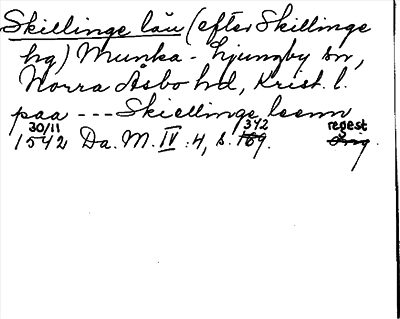 Skillinge län (efter Skillinge
hg) Munka-Ljungby sn,
Norra Åsbo hd, Krist. l.
paa --- Skiellinge leenn
30/11 1542 Da. M. IV:4, s. 169. 342 orig. regest